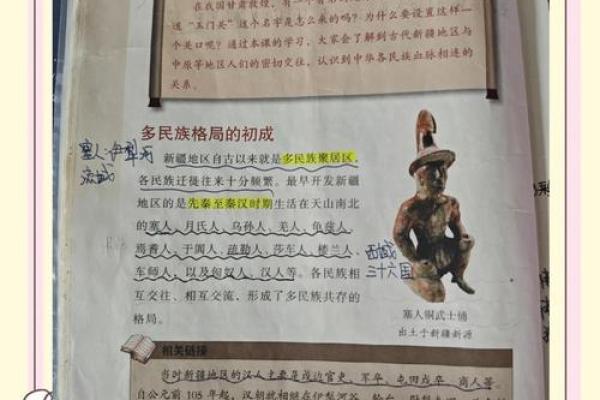 在我国甘肃敦煌，有一个
道“玉门关”这个名字是怎么来的吗？为什么要设置这样一
个关口呢？通过本课的学习，大家会了解到古代新疆地区与
中原等地区人们的密切交往，认识到中华各民族血脉相连的
关系。
多民族格局的初成
塞人：伊犁河
流域
新疆地区自古以来就是多民族聚居区，
各民族迁徙往来十分频繁。最早开发新疆
地区的是先秦至秦汉时期生活在天山南北
的塞人、月氏人、乌孙人、羌人、龟兹人、
焉耆人、于阗人、疏勒人、莎车人、楼兰人、
车师人，以及匈奴人、汉人等。各民族相
互交往、相互交流，形成了多民族共存的
格局。
西域
三十六国
塞人铜武士俑
出土于新疆新源
相关链接
当时新疆地区的汉人主要是戍边官吏、军卒、屯田戍卒、商人等。
自公元前105年起，汉朝就相继在伊犁河谷、